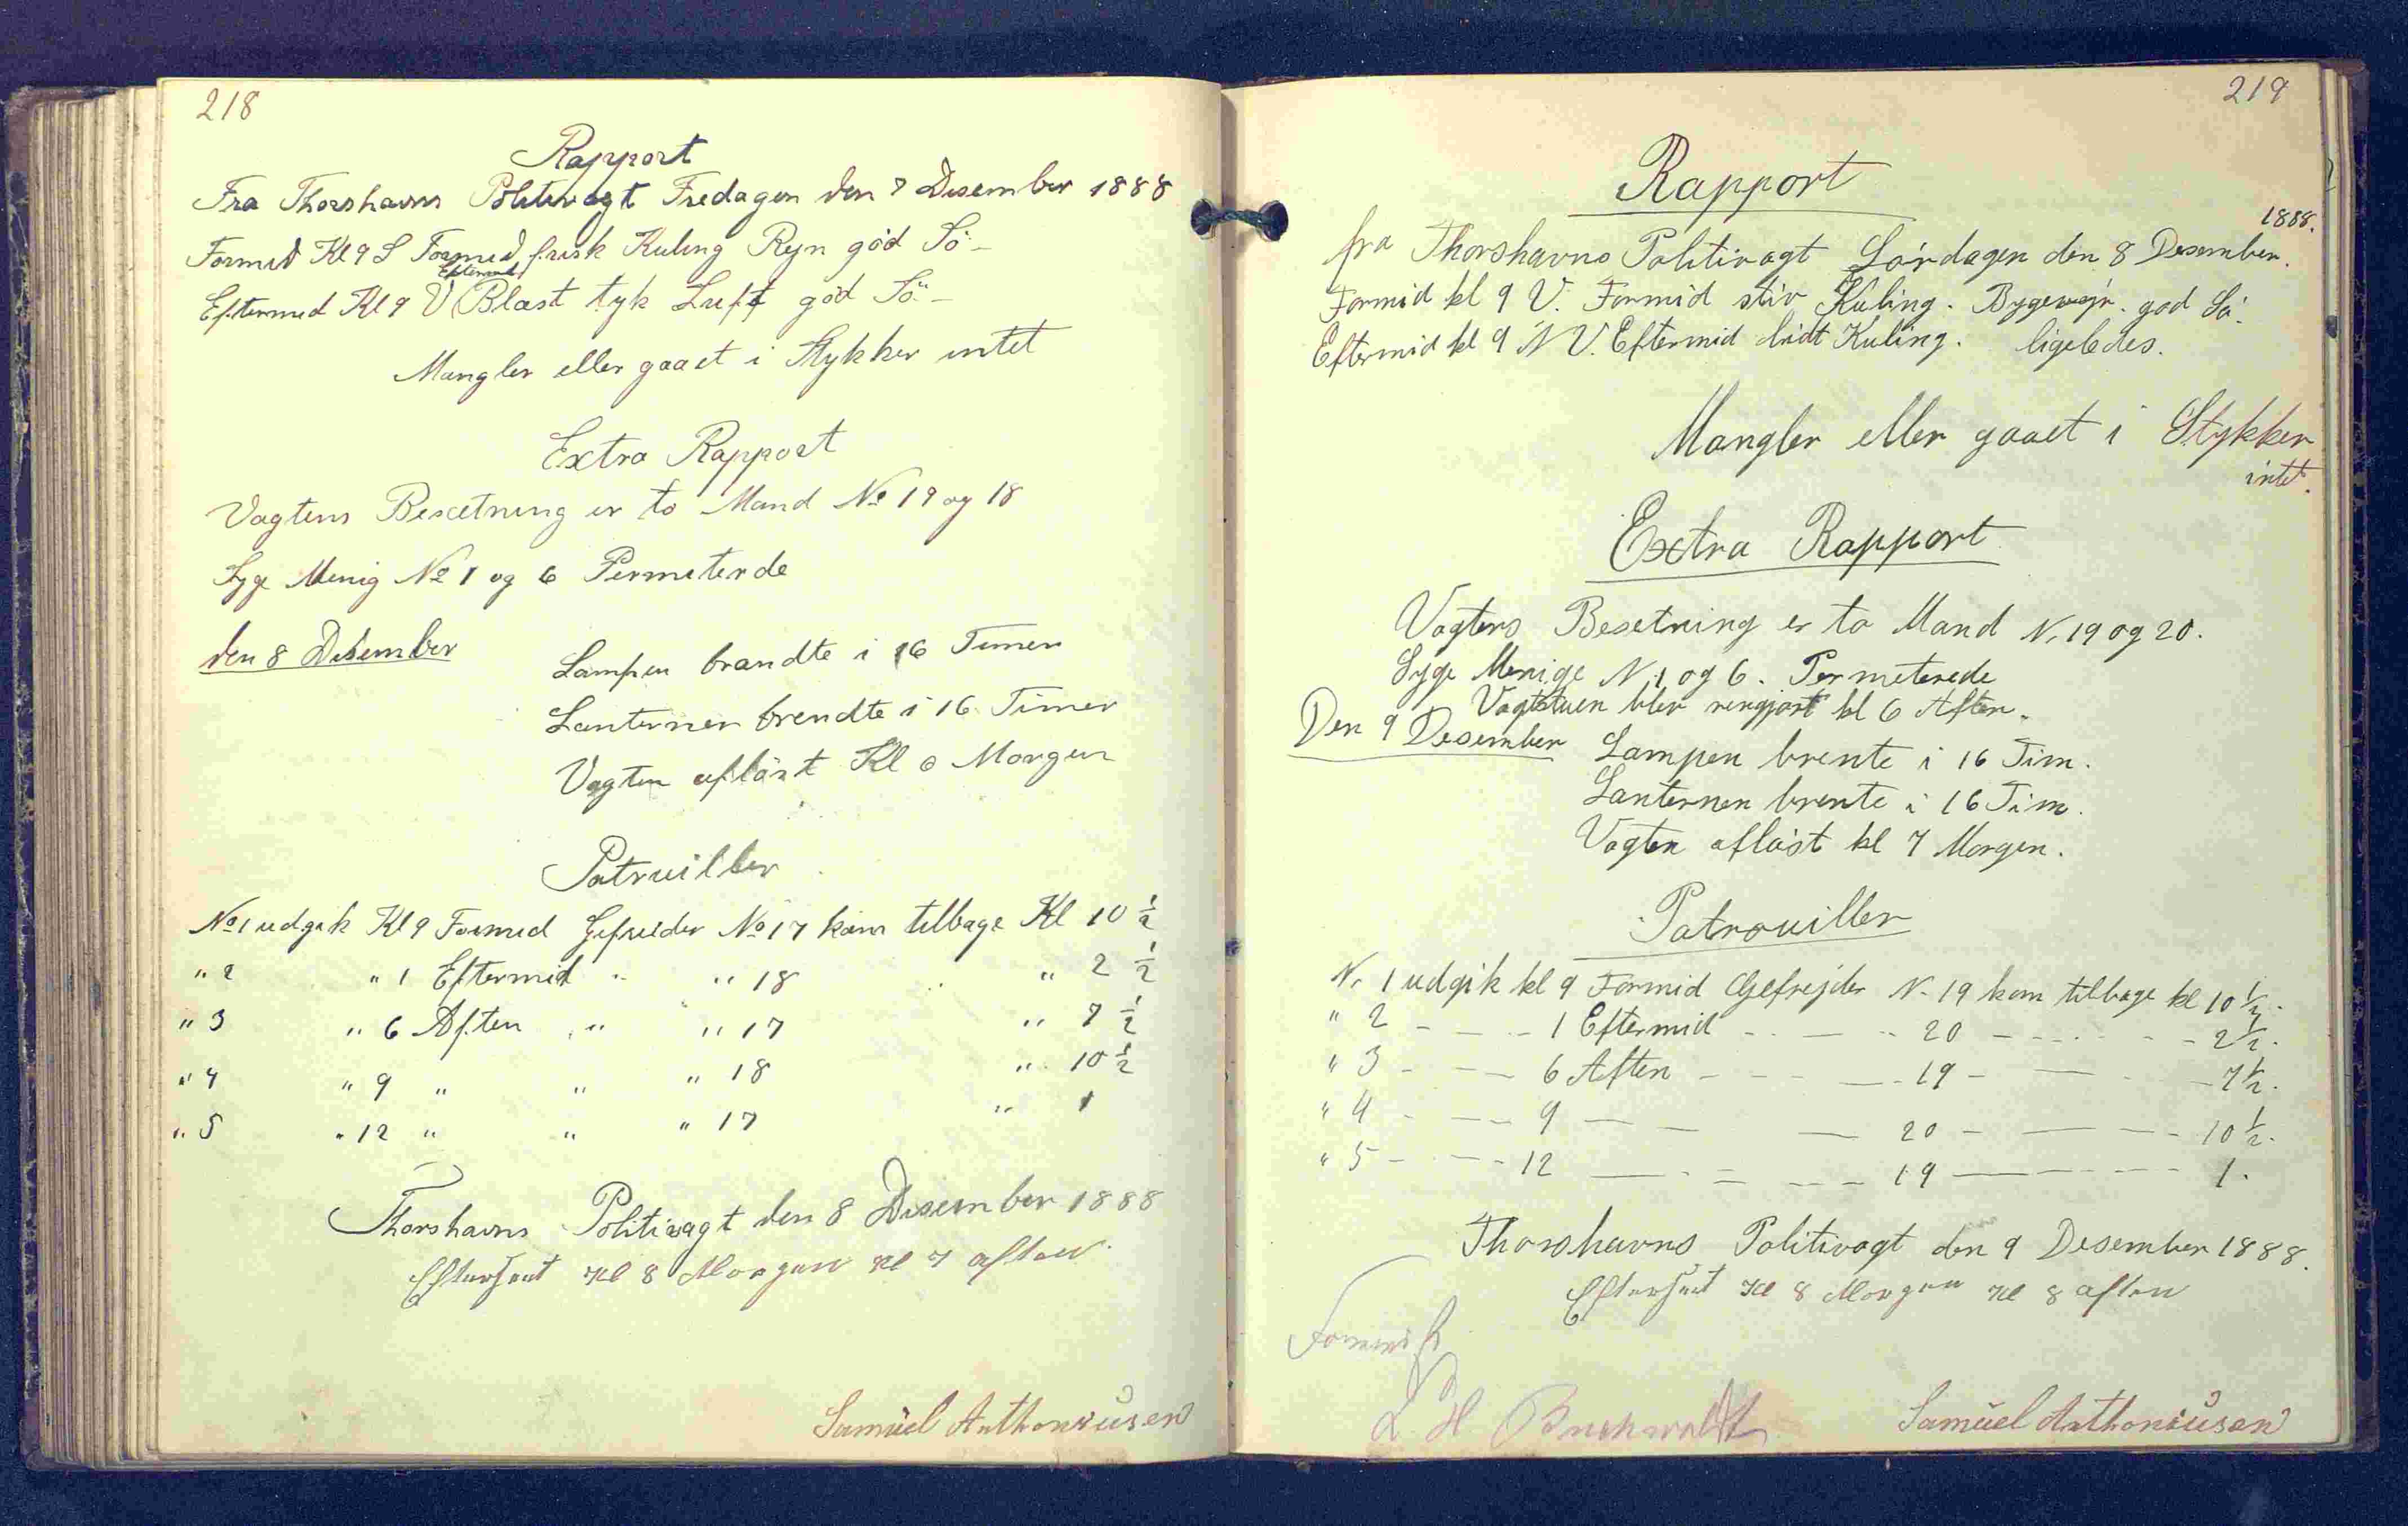 218
Rapport
Fra Thorshavns Politivagt Fredagen den 7 Desember 1888
Formid Kl 9 S Formid frisk Kuling Reyn göd Sö
Eftermid
Eftermid Kl 9 V Blast tyk Luft göd Sö
Mangler eller gaaet i Stykker intet
Extra Rapport
Vagtens Besetning er to Mand No 19 og 18
Syge Menig No 1 og 6 Permeterde
den 8 Desember
Lampen brandte i 16 Timer
Lanternen brendte i 16 Timer
Vagten aflöst Kl Morgen
Patruiller
No 1 udgik Kl 9 Formid Gefreider No 17 kom tilbage Kl 10 1/2
" 2 " 1 Eftermid " " 18 " 2 1/2
" 3 " 6 Aften " " 17 " 7 1/2
" 4 " 9 " " " 18 " 10 1/2
" 5 " 12 " " " 17 " 1
Thorshavns Politivagt den 8 Desember 1888
Kl 8 Morgen Kl 7 aften
Samuel Anthoniusen
219
Rapport
1888.
fra Thorshavns Politivagt Lördagen den 8 Desember.
Formid kl 9 V. Formid stiv Kuling. Bygevejr. god Sö.
Eftermid kl 9 N V. Eftermid lidt Kuling. ligeledes.
Mangler eller gaaet i Stykker
intet.
Extra Rapport
Vagtens Besetning er to Mand N. 19 og 20.
Syge Menige N. 1 og 6. Permeterede
Vagtstuen blev rengjört kl 6 Aften.
Den 9 Desember
Lampen brente i 16 Tim.
Lanternen brente i 16 Tim.
Vagten aflöst kl 7 Morgen.
Patrouiller
N. 1 udgik kl 9 Formid Gefrejder N. 19 kom tilbage kl 10 1/2.
" 2 - - - 1 Eftermid - - - 20 - - - - 2 1/2.
" 3 - - - 6 Aften - - - 19 - - - - 7 1/2.
" 4 - - - 9 - - - 20 - - - - 10 1/2.
" 5 - - - 12 - - - 19 - - - - 1.
Thorshavns Politivagt den 9 Desember 1888.
Kl 8 Morgen Kl 8 aften
L H Buchwaldt
Samuel Anthoniusen